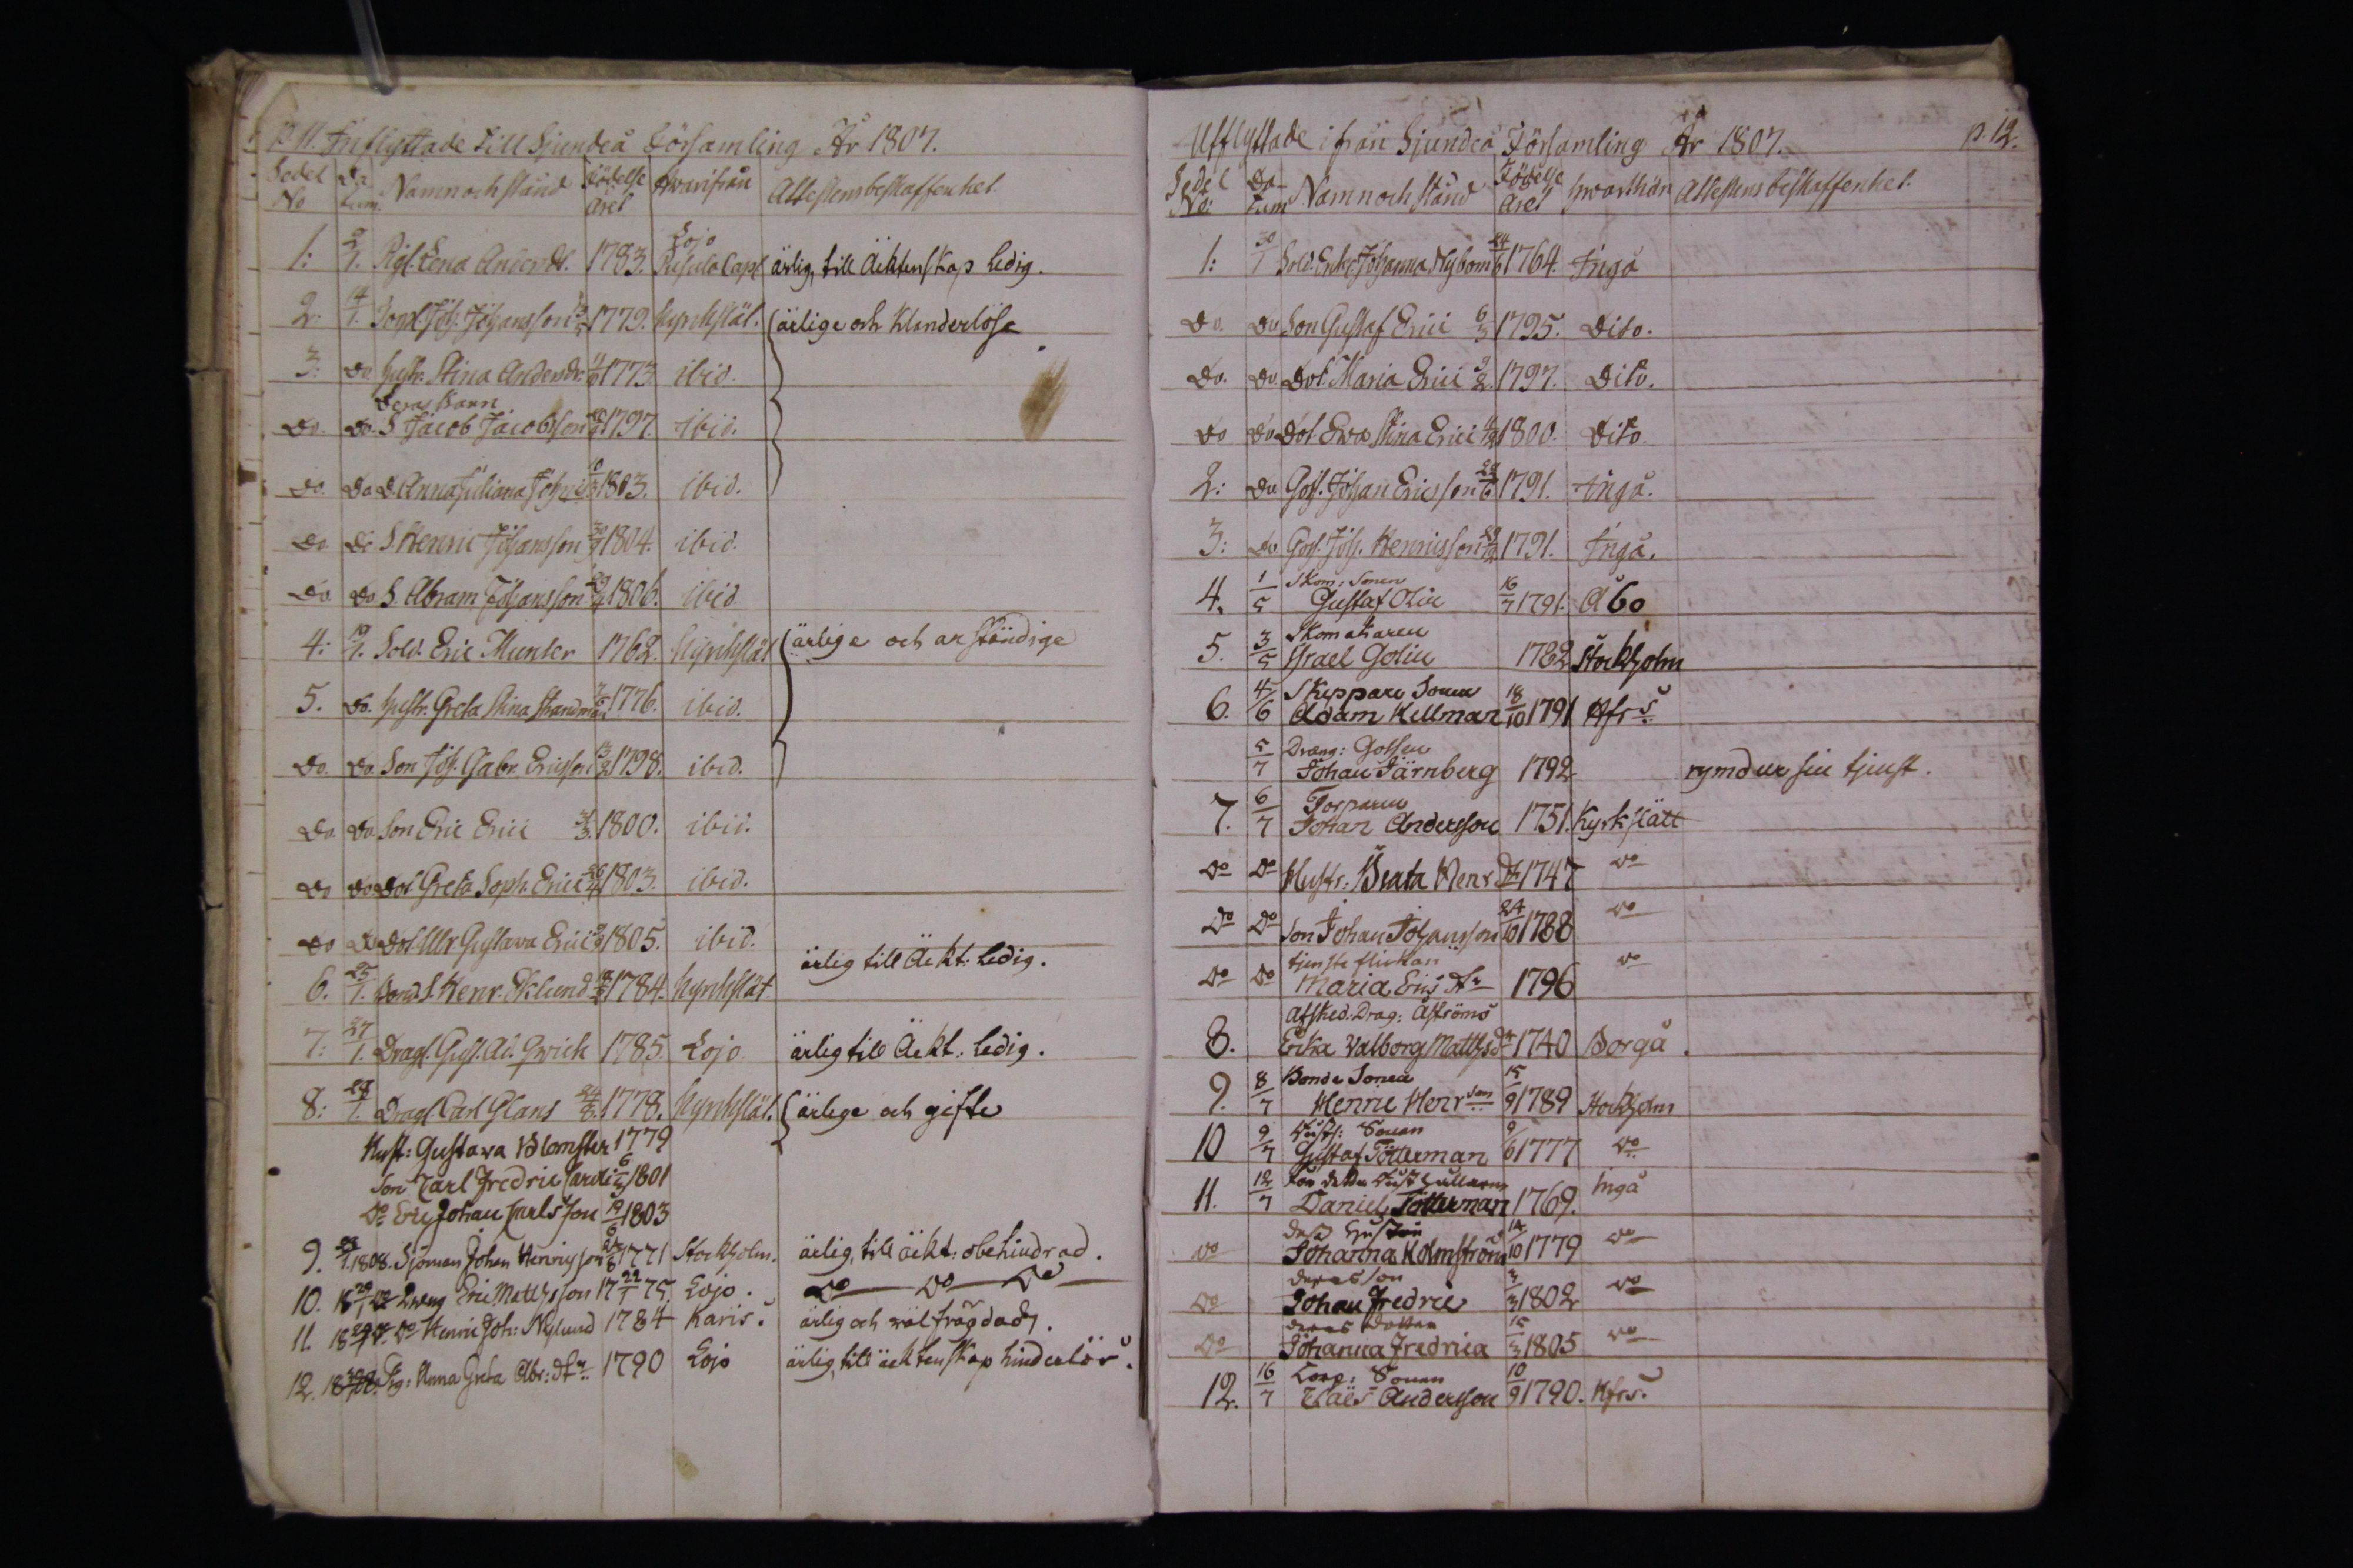 p. 11. Inflyttade till Sjundeå Församling År 1807.
Sedel No Datum. Namn och stånd Födelse Året hvarifrån Attestens beskaffenhet
1: 7. Pig. Lena Andersdr. 1783. Lojo Pusula Capl ärlig, till Äktenskap ledig.
2. 14/7. Joh. Johansson 1779. Kyrkslät. ärlige och klanderlöse
3: Do Hustr. Stina Andersdr. 1773 ibid.
Deras Barn
Do. Do. S. Jacob Jacobsson 1797. ibid.
Do. Do D. Anna Juliana Joh. 1803. ibid.
Do Do S. Henric Johansson 30/9 1804. ibid.
Do Do S. Abram Johansson 1806. ibid
4: 19/7. Sold. Eric Munter 1762. Kyrkslät ärlige och anständige
5. Do. Hustr. Greta Stina Strandman 1776. ibid.
Do. Do. Son Joh. Gabr. Ericsson 13/2 1798. ibid.
Do Do Son Eric Erici 1800. ibid.
Do Do Dot. Greta Soph. Erici 26/4 1803. ibid.
Do Do Dot. Ulr. Gustava Erici 1805. ibid.
6. 25/7. Bond. S. Henr. Eklund 1784. Kyrkslät ärlig till Äckt: ledig.
7: 27/7. Drag. Gust. Ad. Qwick 1785. Lojo ärlig till Äckt: ledig.
8: 28/7. Drag. Carl Glans 24/8. 1778. Kyrkslät. ärlige och gifte
Hust: Gustava Blomster 1779
Son Carl Fredric Caroli 6/3 1801
Do Eric Johan Carlsson 19/6 1803
9. 1808. Sjöman Johan Henricsson 1771 Stockholm. ärlig, till äckt: obehindrad.
10. 18 29/1 08 Dreng Eric Mattsson 17 22/1 75. Lojo. Do Do Do
11. 18 Do Henric Joh: Nylund 1784 Karis. ärlig och väl frägdad.
12. 18 Pig: Anna Greta Abr: dr 1790 Lojo ärlig, till äcktenskap hinderlös.
Utflyttade ifrån Sjundeå Församling År 1807. p. 12.
Sedel No: Datum Namn och stånd Födelse Året hvarthän Attestens beskaffenhet.
1: 30/1 Sold. Enk. Johanna Nybom 24/6 1764. Ingå
Do. Do Son Gustaf Erici 6/3 1795. Dito.
Do. Do. Dot. Maria Erici 1797. Dito.
Do Do Dot. Ewa Stina Erici 1800. Dito.
2: Do Goss. Johan Ericsson 28/6 1791. Ingå.
3: Do Goss. Joh. Henricsson 1791. Ingå.
4. 1/5 Skom: Sonen Gustaf Olin 16/7 1791. Åbo
5. 3/5 Skomakaren Israel Golin 1762 Stockholm
6. 4/6 Skeppare Sonen Adam Kellman 18/10 1791 Hfrs.
5/7 Dreng: Gossen Johan Järnberg 1792 rymd ur sin tjenst.
7. 6/7 Torparen Johan Andersson 1751. Kyrkslätt
Do Do Hustr: Beata Henr. Dr 1747 Do
Do Do Son Johan Johansson 24/10 1788 Do
Do Do tjenste flickan Maria Erics Dr 1796 Do
8. Afsked: Drag: Åströms Enka Valborg Mattsdr 1740 Borgå.
9. 8/7 Bonde Sonen Henric Henr son 15/9 1789 Stockholm
10 9/7 Sonen Gustaf Tötterman 9/6 1777 Do
11. 12/7 Daniel Tötterman 1769. Ingå
Do Dess Hustru Johanna Holmström 14/10 1779 Do
Do deras son Johan Fredric 3/3 1802 Do
Do deras dotter Johanna Fredrica 15/3 1805 Do
12. 16/7 Corp: Sonen Claës Andersson 10/9 1790. Hfrs.